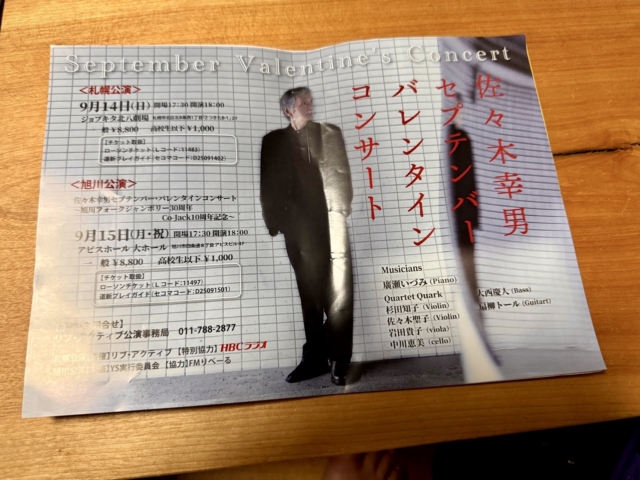 September Valentine's Concert
佐々木幸男
セプテンバー
バレンタイン
コンサート
<札幌公演>
9月14日(日) 開場17:30 開演18:00
ジョブキタ北八劇場
一般 ¥8,800 高校生以下 ¥1,000
【チケット取扱】
ローソンチケット(Lコード:11483)
道新プレイガイド(セコマコード:D25091402)
<旭川公演>
佐々木幸男セプテンバー・バレンタインコンサート
~旭川フォークジャンボリー30周年
Co-Jack10周年記念~
9月15日(月・祝) 開場17:30 開演18:00
アピスホール 大ホール
一般 ¥8,800 高校生以下 ¥1,000
【チケット取扱】
ローソンチケット(Lコード:11497)
道新プレイガイド(セコマコード:D25091501)
合せ】
アクティブ公演事務局 011-788-2877
】リブ・アクティブ 【特別協力】HBCラジオ
】YS実行委員会 【協力】FMりべーる
Musicians
廣瀬いづみ(Piano)
Quartet Quark
杉田知子(Violin)
佐々木聖子(Violin)
岩田貴子(viola)
中川恵美(cello)
大西慶人(Bass)
柳トール(Guitart)